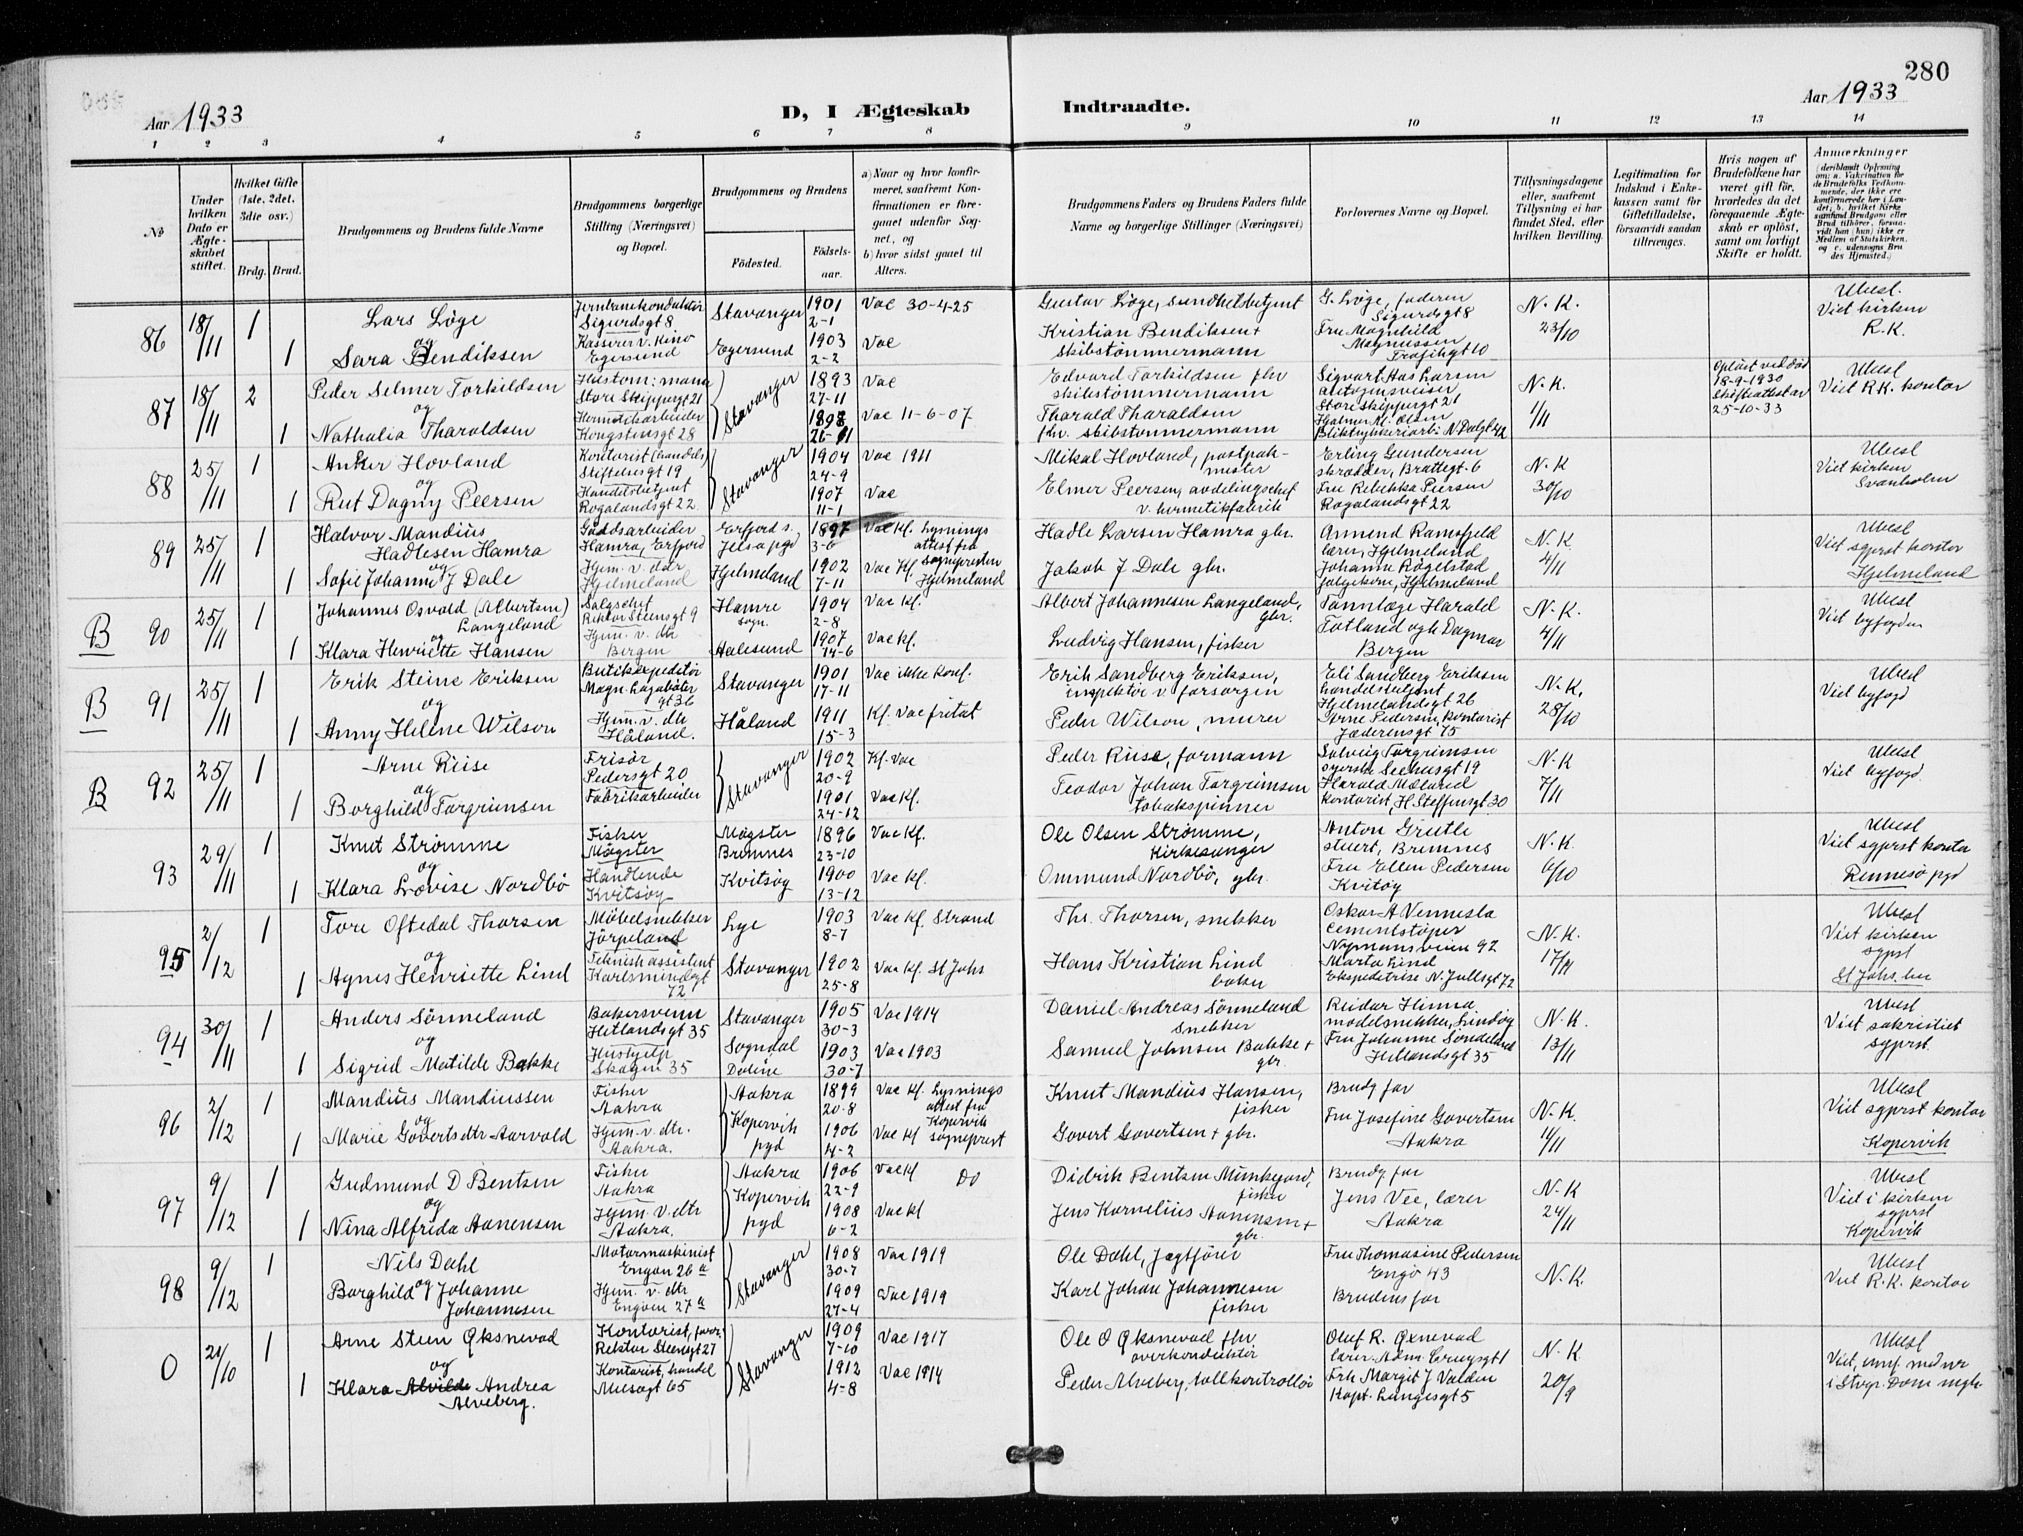 280
Aar 1933
D, I Ægteskab Indtraadte.
Aar 1933
1 2 3 4 5 6 7 8 9 10 11 12 13 14
No
Under hvilken Dato er Ægteskabet stiftet.
Hvilket Gifte (1ste, 2det, 3die osv.)
Brdg. Brud.
Brudgommens og Brudens fulde Navne
Brudgommens borgerlige Stilling (Næringsvei) og Bopæl.
Brudgommens og Brudens
Fødested. Fødselsaar.
a) Naar og hvor konfirmeret, saafremt Konfirmationen er foregaaet udenfor Sognet, og
b) hvor sidst gaaet til Alters.
Brudgommens Faders og Brudens Faders fulde Navne og borgerlige Stillinger (Næringsvei)
Forlovernes Navne og Bopæl.
Tillysningsdagene eller, saafremt Tillysning ei har fundet Sted, efter hvilken Bevilling.
Legitimation for Indskud i Enkekassen samt for Giftetilladelse, forsaavidt saadan tiltrænges.
Hvis nogen af Brudefolkene har været gift før, hvorledes da det foregaaende Ægteskab er opløst, samt om lovligt Skifte er holdt.
Anmærkninger
86 18/11 1 Lars Löge Jernbanekonduktör Sigurdsgt 8 Stavanger 1901 2-1 Vac 30-4-25 Gustav Löge, sundhetsbetjent G. Löge, faderen Sigurdsgt 8 N. K. 23/10 Ubesl. Viet kirken R.K.
og
1 Sara Bendiksen Kasserer v. Kino Egersund Egersund 1903 2-2 Vac Kristian Bendiksen + Skibstömmermann Fru Magnhild Magnussen
87 18/11 2 Peder Selmer Torkildsen Store Skippergt 21 Stavanger 1893 27-11 Vac Edvard Torkildsen fhv skibstömmermann Sigvart Aas Larsen Store skippergt 21 N. K. 1/11 Opløst ved död 18-9-1930 Skifteattest av 25-10-33 Ubesl Viet R.K. kontor
og
1 Nathalia Tharaldsen Hermetikarbeider Kongstensgt 28 1898 26-11 Vac 11-6-07 Tharald Tharaldsen fhv. skibstömmermann Hjalmar M. Olsen
88 25/11 1 Anker Hovland Kontorist (handels) Stiftelsesgt 19 Stavanger 1904 24-9 Vac 1911 Mikal Hovland, postpakmester Erling Gundersen skrædder, Brattegt 6 N. K 30/10 Ubesl Viet kirken Svanholm
og
1 Rut Dagny Peersen Handelsbetjent Rogalandsgt 22 1907 11-1 Vac Elmer Peersen, avdelingschef v. hermetikfabrik Fru Rebekka Peersen Rogalandsgt 22
89 25/11 1 Halvor Mandius Hadlesen Hamra Gaardsarbeider Hamra, Erfjord Erfjord s. Jelsa pgd 1897 3-6 Vac Kf. Lysningsattest fra Sognepresten Hjelmeland Hadle Larsen Hamra gbr. Ånmend Ramsfjeld lærer, Hjelmeland N. K 4/11 Ubesl Viet sgprst kontor Hjelmeland
og
1 Sofie Johanne J Dale Hjem. v. dtr Hjelmeland Hjelmeland 1902 7-11 Vac Kf. Jakob J Dale gbr. Johanne Rögelstad Hjelmeland
B 90 25/11 1 Johannes Osvald (Albertsen) Langeland Salgschef Rektor Steensgt 9 Hamre sogn. 1904 2-8 Vac Kf. Albert Johannesen Langeland, gbr. Tannlæge Harald Totland og fr Dagmar Bergen N. K. 4/11 Ubesl Viet byfogden
og
1 Klara Henriette Hansen Hjem. v. dtr Bergen Aalesund 1907 14-6 Vac kf. Ludvig Hansen, fisker
B 91 25/11 1 Erik Steine Eriksen Butikexpeditör Magn. Lagabøter gt 36 Stavanger 1901 17-11 Vac ikke konf. Erik Sandberg Eriksen, inspektör v. forsorgen Eli Sandberg Eriksen Hjelmelandsgt 26 N. K. 28/10 Ubesl Viet byfogd
og
1 Anny Helene Wilson Hjem. v. dtr Håland. Håland 1911 15-3 Kf. Vac fritat Peder Wilson, murer Arne Pedersen, kontorist Jæderensgt 75
B 92 25/11 1 Arne Riise Frisör Pedersgt 20 Stavanger 1902 20-9 Kf. Vac Peder Riise, formann Solveig Torgrimsen syerske Seehusgt 19 N. K 7/11 Ubesl Viet byfogd.
og
1 Borghild Torgrimsen Fabrikarbeider 1901 24-12 Vac Kf. Teodor Johan Torgrimsen tobakspinner Harald Mæland kontorist, H. Steffensgt 30
93 29/11 1 Knut Strömme Fisker Mögster Mögster Bremnes 1896 23-10 Vac Kf. Ole Olsen Strömme, Kirkesanger Anton Grutle stuert, Bremnes N. K. 6/10 Ubesl Viet sgprst kontor Rennesö pgd
og
1 Klara Lovise Nordbö Handlende Kvitsöy Kvitsöy 1900 13-12 Vac kf. Ommund Nordbö, gbr. Fru Ellen Pedersen Kvitsöy
95 2/12 1 Tore Oftedal Thorsen Möbelsnekker Jörpeland Lye 1903 8-7 Vac Kf. Strand Th. Thorsen, snekker Oskar A Vennesla cementstöper Nymansveien 92 N. K. 17/11 Ubesl Viet kirken sgprst St Johs. br
og
1 Agnes Henriette Lind Teknisk assistent Karlsmindegt 72 Stavanger 1902 25-8 Vac Kf. St Johs Hans Kristian Lind baker Marta Lind Ekspeditrise N. Juelsgt 72
94 30/11 1 Anders Sönneland Bakersvenn Hetlandsgt 35 Stavanger 1905 30-3 Vac 1914 Daniel Andreas Sönneland snekker Reidar Hinna modelsnekker, Lindöy N. K. 13/11 Ubesl Viet sakristiet sgprst.
og
1 Sigrid Matilde Bakke Hushjelp Skagen 35 Sogndal Dalene 1903 30-7 Vac 1903 Samuel Johnsen Bakke + gbr. Fru Johanne Sönneland Hetlandsgt 35
96 2/12 1 Mandius Mandiussen Fisker Aakra Aakra Kopervik pgd 1899 20-8 Vac Kf. Lysningsattest fra Kopervik sogneprest Knut Mandius Hansen, fisker Brudg far N. K. 14/11 Ubesl Viet sgprst kontor Kopervik
og
1 Marie Govertsdtr Aarvold Hjem. v. dtr. Aakra. 1906 4-2 Vac Kf Govert Govertsen + gbr. Fru Josefine Govertsen Aakra
97 9/12 1 Gudmund D Bentsen Fisker Aakra Aakra Kopervik pgd 1906 22-9 Vac kf Do Didrik Bentsen Munkegord, fisker Brudg far N. K 24/11 Ubesl Viet i kirken sgprst Kopervik
og
1 Nina Alfrida Aanensen Hjem. v. dtr Aakra. 1908 6-2 Vac kf Jens Kornelius Aanensen + gbr. Jens Vee, lærer Aakra
98 9/12 1 Nils Dahl Motormaskinist Engöen 26 a Stavanger 1908 30-7 Vac 1919 Ole Dahl, Jagtförer Fru Thomasine Pedersen Engö 43 N. K. Ubesl Viet R. K. kontor
og
Borghild Johanne Johannesen Hjem. v. dtr Engöen 27 a 1909 27-4 Vac 1919 Karl Johan Johannesen fisker Brudens far
0 21/10 1 Arne Steen Öksnevad Kontorist, forr. Rektor Steensgt 27 Stavanger 1909 7-10 Vac 1917 Ole O Öksnevad fhv. overkonduktör Oluf R. Öxnevad lærer. Adm. Cruysgt 1 N. K 20/9 Ubesl Viet, i Stvgr. Dom
og
1 Klara Alvilde Andrea Alveberg. Kontorist, handel Musegt 65 1912 4-8 Vac 1914 Peder Alveberg, tollkontrollör Frk Margit J Valden Kapt. Langesgt 5